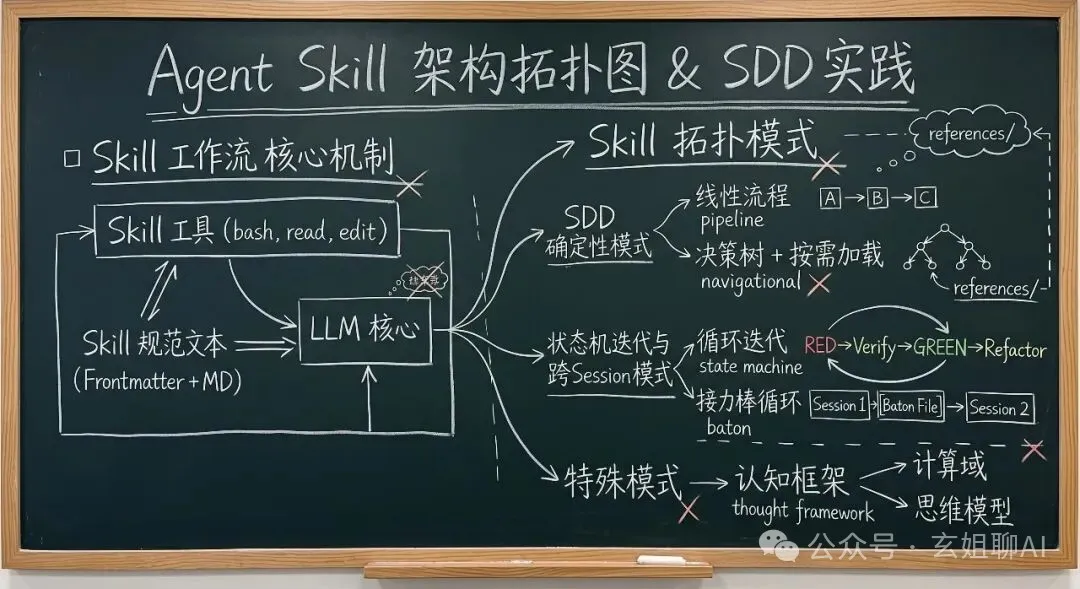 Agent Skill 架构拓扑图 & SDD 实践
□ Skill 工作流 核心机制
Skill 工具 (bash, read, edit)
LLM 核心
Skill 规范文本
(Frontmatter + MD)
Skill 拓扑模式
references/
SDD
确定性模式
线性流程
pipeline
A → B → C
决策树 + 按需加载
navigational
references/
状态机迭代与
跨Session模式
循环迭代
state machine
RED → Verify → GREEN → Refactor
接力棒循环
baton
Session 1 → [Baton File] → Session 2
特殊模式 → 认知框架
thought framework
计算域
思维模型
公众号 · 玄姐聊AI